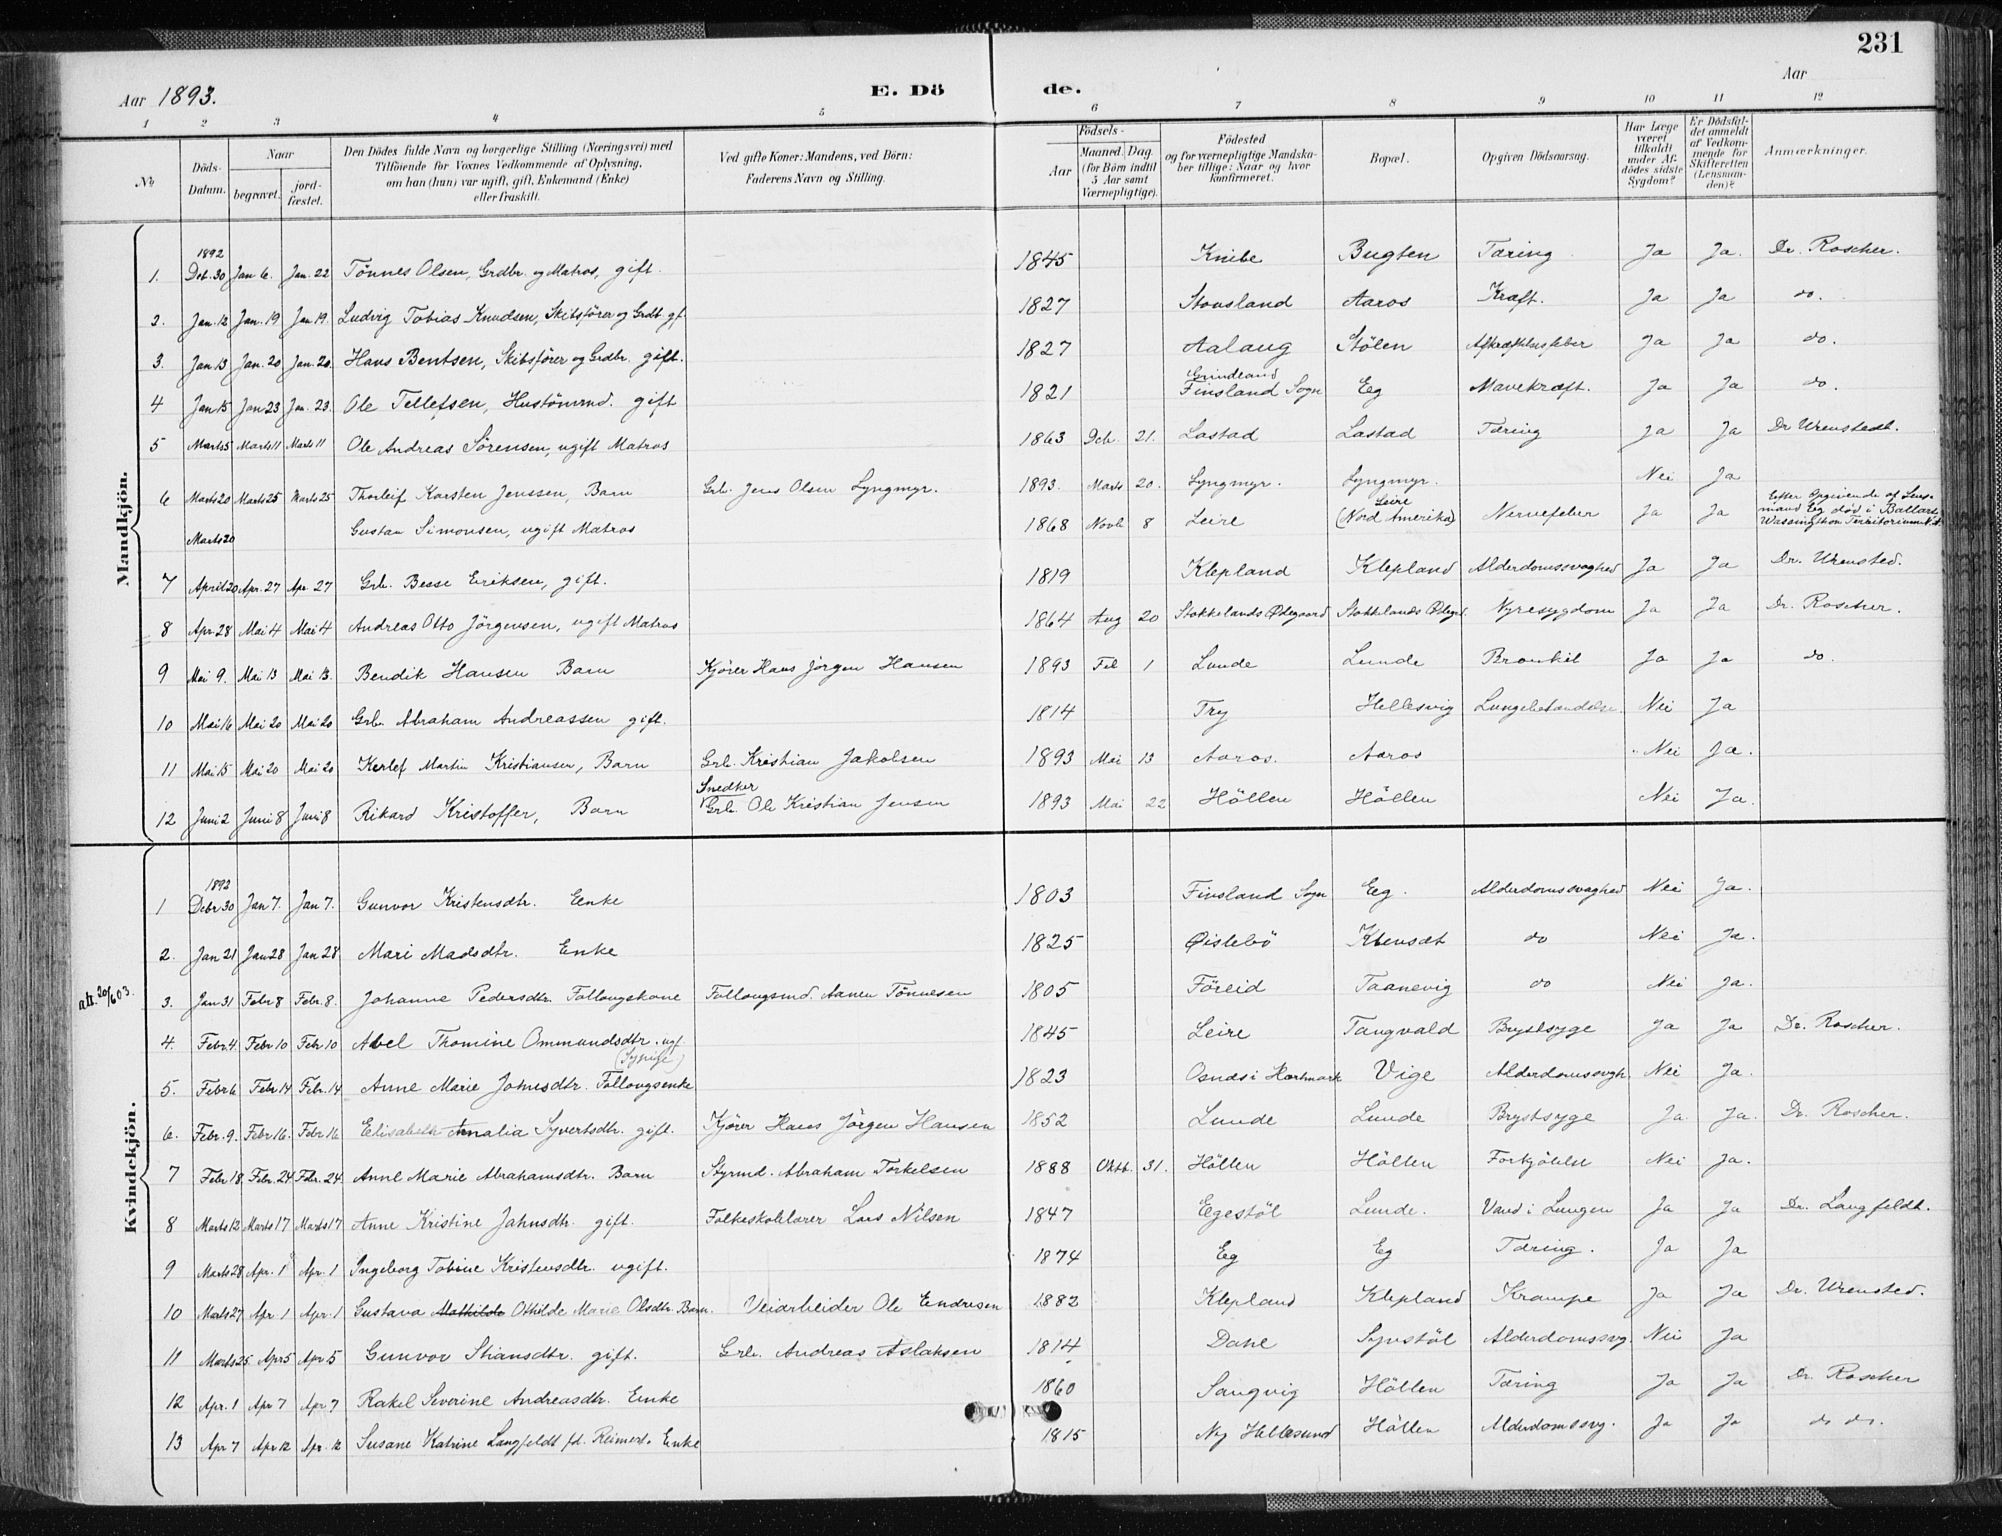 231
Aar 1893. E. Dö de. Aar
1 2 3 4 5 6 7 8 9 10 11 12
No Döds-Datum. Naar begravet. jordfæstet. Den Dödes fulde Navn og borgerlige Stilling (Næringsvei) med Tilföiende for Voxnes Vedkommende af Oplysning, om han (hun) var ugift, gift, Enkemand (Enke) eller fraskilt. Ved gifte Koner: Mandens, ved Börn: Faderens Navn og Stilling. Födsels- Aar Maaned. Dag. (for Börn indtil 5 Aar samt Værnepligtige). Födested og for værnepligtige Mandskaber tillige: Naar og hvor konfirmeret. Bopæl. Opgiven Dödsaarsag. Har Læge været tilkaldt under Afdödes sidste Sygdom? Er Dödsfaldet anmeldt af Vedkommende for Skifteretten (Lensmanden)? Anmærkninger.
Mandkjön.
1. 1892 Deb. 30 Jan 6. Jan. 22 Tönnes Olsen, Grdbr. og Matros, gift. 1845 Knibe Bugten Tæring Ja Ja. Dr. Roscher.
2. Jan. 12 Jan. 19 Jan. 19. Ludvig Tobias Knudsen, Skibsförer og Grdb. gf. 1827 Stousland Aaros Kræft. Ja Ja do.
3. Jan. 13 Jan. 20 Jan. 20. Hans Bentsen, Skibsförer og Grdbr. gift. 1827 Aalaug Stölen Afkræftelsesfeber Ja Ja do.
4 Jan 15 Jan 23 Jan. 23. Ole Tellefsen, Hustömmd. gift 1821 Grindland Finsland Sogn Eeg Mavekræft. Ja Ja do.
5 Marts 5 Marts 11 Marts 11 Ole Andreas Sörensen, ugift Matros 1863 Dcb. 21. Lastad Lastad Tæring Ja Ja Dr Urenstedt.
6 Marts 20 Marts 25 Marts 25 Thorleif Karsten Jenssen, Barn Grb. Jens Olsen Lyngmyr. 1893. Marts 20. Lyngmyr. Lyngmyr. Nei Ja
Marts 20 Gustav Simonsen, ugift Matros 1868 Novb 8 Leire Leire (Nord Amerika) Nervefeber Ja Ja Efter Opgivende af Lensmand Eeg död i Ballard, Wassingthon Territorium N.A.
7 April 20 Apr. 27 Apr. 27 Grb. Besse Eriksen, gift. 1819 Klepland Klepland Alderdomssvaghed Ja Ja Dr. Urensted.
8 Apr. 28 Mai 4 Mai 4 Andreas Otto Jörgensen, ugift Matros 1864 Aug 20 Stokkelands Ødegaard Stokkelands Ødegrd. Nyresygdom Ja Ja Dr. Roscher.
9 Mai 9. Mai 13 Mai 13. Bendik Hansen Barn Kjörer Hans Jörgen Hansen 1893 Feb 1 Lunde Lunde Bronkit Ja Ja do.
10 Mai 16 Mai 20 Mai 20 Grb. Abraham Andreassen gift. 1814 Try Hellesvig Lungebetændelse. Nei Ja
11 Mai 15 Mai 20 Mai 20 Kerlef Martin Kristiansen, Barn Grb. Kristian Jakobsen 1893 Mai 13 Aaros. Aaros Nei Ja.
12 Juni 2 Juni 8 Juni 8 Rikard Kristoffer, Barn Snedker Grb. Ole Kristian Jensen 1893 Mai 22 Höllen Höllen Nei Ja.
Kvindekjön.
1 1892 Debr 30 Jan 7. Jan 7. Gunvor Kristensdtr. Enke 1803 Finsland Sogn Eeg. Alderdomssvaghed Nei Ja.
2. Jan 21 Jan 28 Jan 28 Mari Madsdtr. Enke 1825 Øislebö Klensæt do Nei Ja.
att. 20/6 03.
3. Jan 31 Febr 8 Febr. 8. Johanne Pedersdtr. Follougskone Follougsmd. Aanen Tönnesen 1805 Föreid Taanevig do Nei Ja.
4. Febr. 4. Febr 10 Febr 10 Abel Thomine Ommundsdtr. ugf. (Sypige) 1845 Leire Tangvald Brystsyge Ja Ja Dr. Roscher.
5. Febr 6 Febr 14 Febr. 14. Anne Marie Johnsdtr. Follougsenke 1823 Osnes i Hartmark Vige Alderdomssvgh. Nei Ja.
6. Febr. 9. Febr 16. Febr 16 Elisabeth Amalia Syvertsdtr. gift. Kjörer Hans Jörgen Hansen 1852 Lunde Lunde Brystsyge Ja Ja. Dr. Roscher.
7 Febr 18. Febr. 24 Febr. 24. Anne Marie Abrahamsdtr. Barn Styrmd. Abraham Torkelsen 1888 Oktb. 31. Höllen Höllen Forkjölelse Nei Ja.
8 Marts 12 Marts 17 Marts 17 Anne Kristine Jahnsdtr. gift. Folkeskolelærer Lars Nilsen 1847 Egestöl Lunde. Vand i Lungen Ja Ja Dr. Langfeldt.
9 Marts 28 Apr. 1 Apr. 1 Ingeborg Tobine Kristensdtr. ugift. 1874 Eeg Eg Tæring. Ja Ja
10 Marts 27 Apr 1 Apr. 1 Gustava Mathilde Othilde Marie Olsdtr. Barn. Veiarbeider Ole Endresen 1882 Klepland Klepland Krampe Ja Ja Dr. Urensted.
11 Marts 25 Apr 5 Apr. 5 Gunvor Stiansdtr. gift. Grb. Andreas Aslaksen 1814 Dane Synstöl Alderdomssvg. Nei Ja
12 Apr. 1 Apr 7 Apr 7 Rakel Severine Andreasdtr. Enke 1860 Sangvig Höllen Tæring Ja Ja Dr. Roscher
13 Apr 7 Apr 12 Apr. 12 Susane Katrine Langfeldt fd. Reimert. Enke 1815 Ny Hellesund Höllen Alderdomssvg. Ja Ja do do.